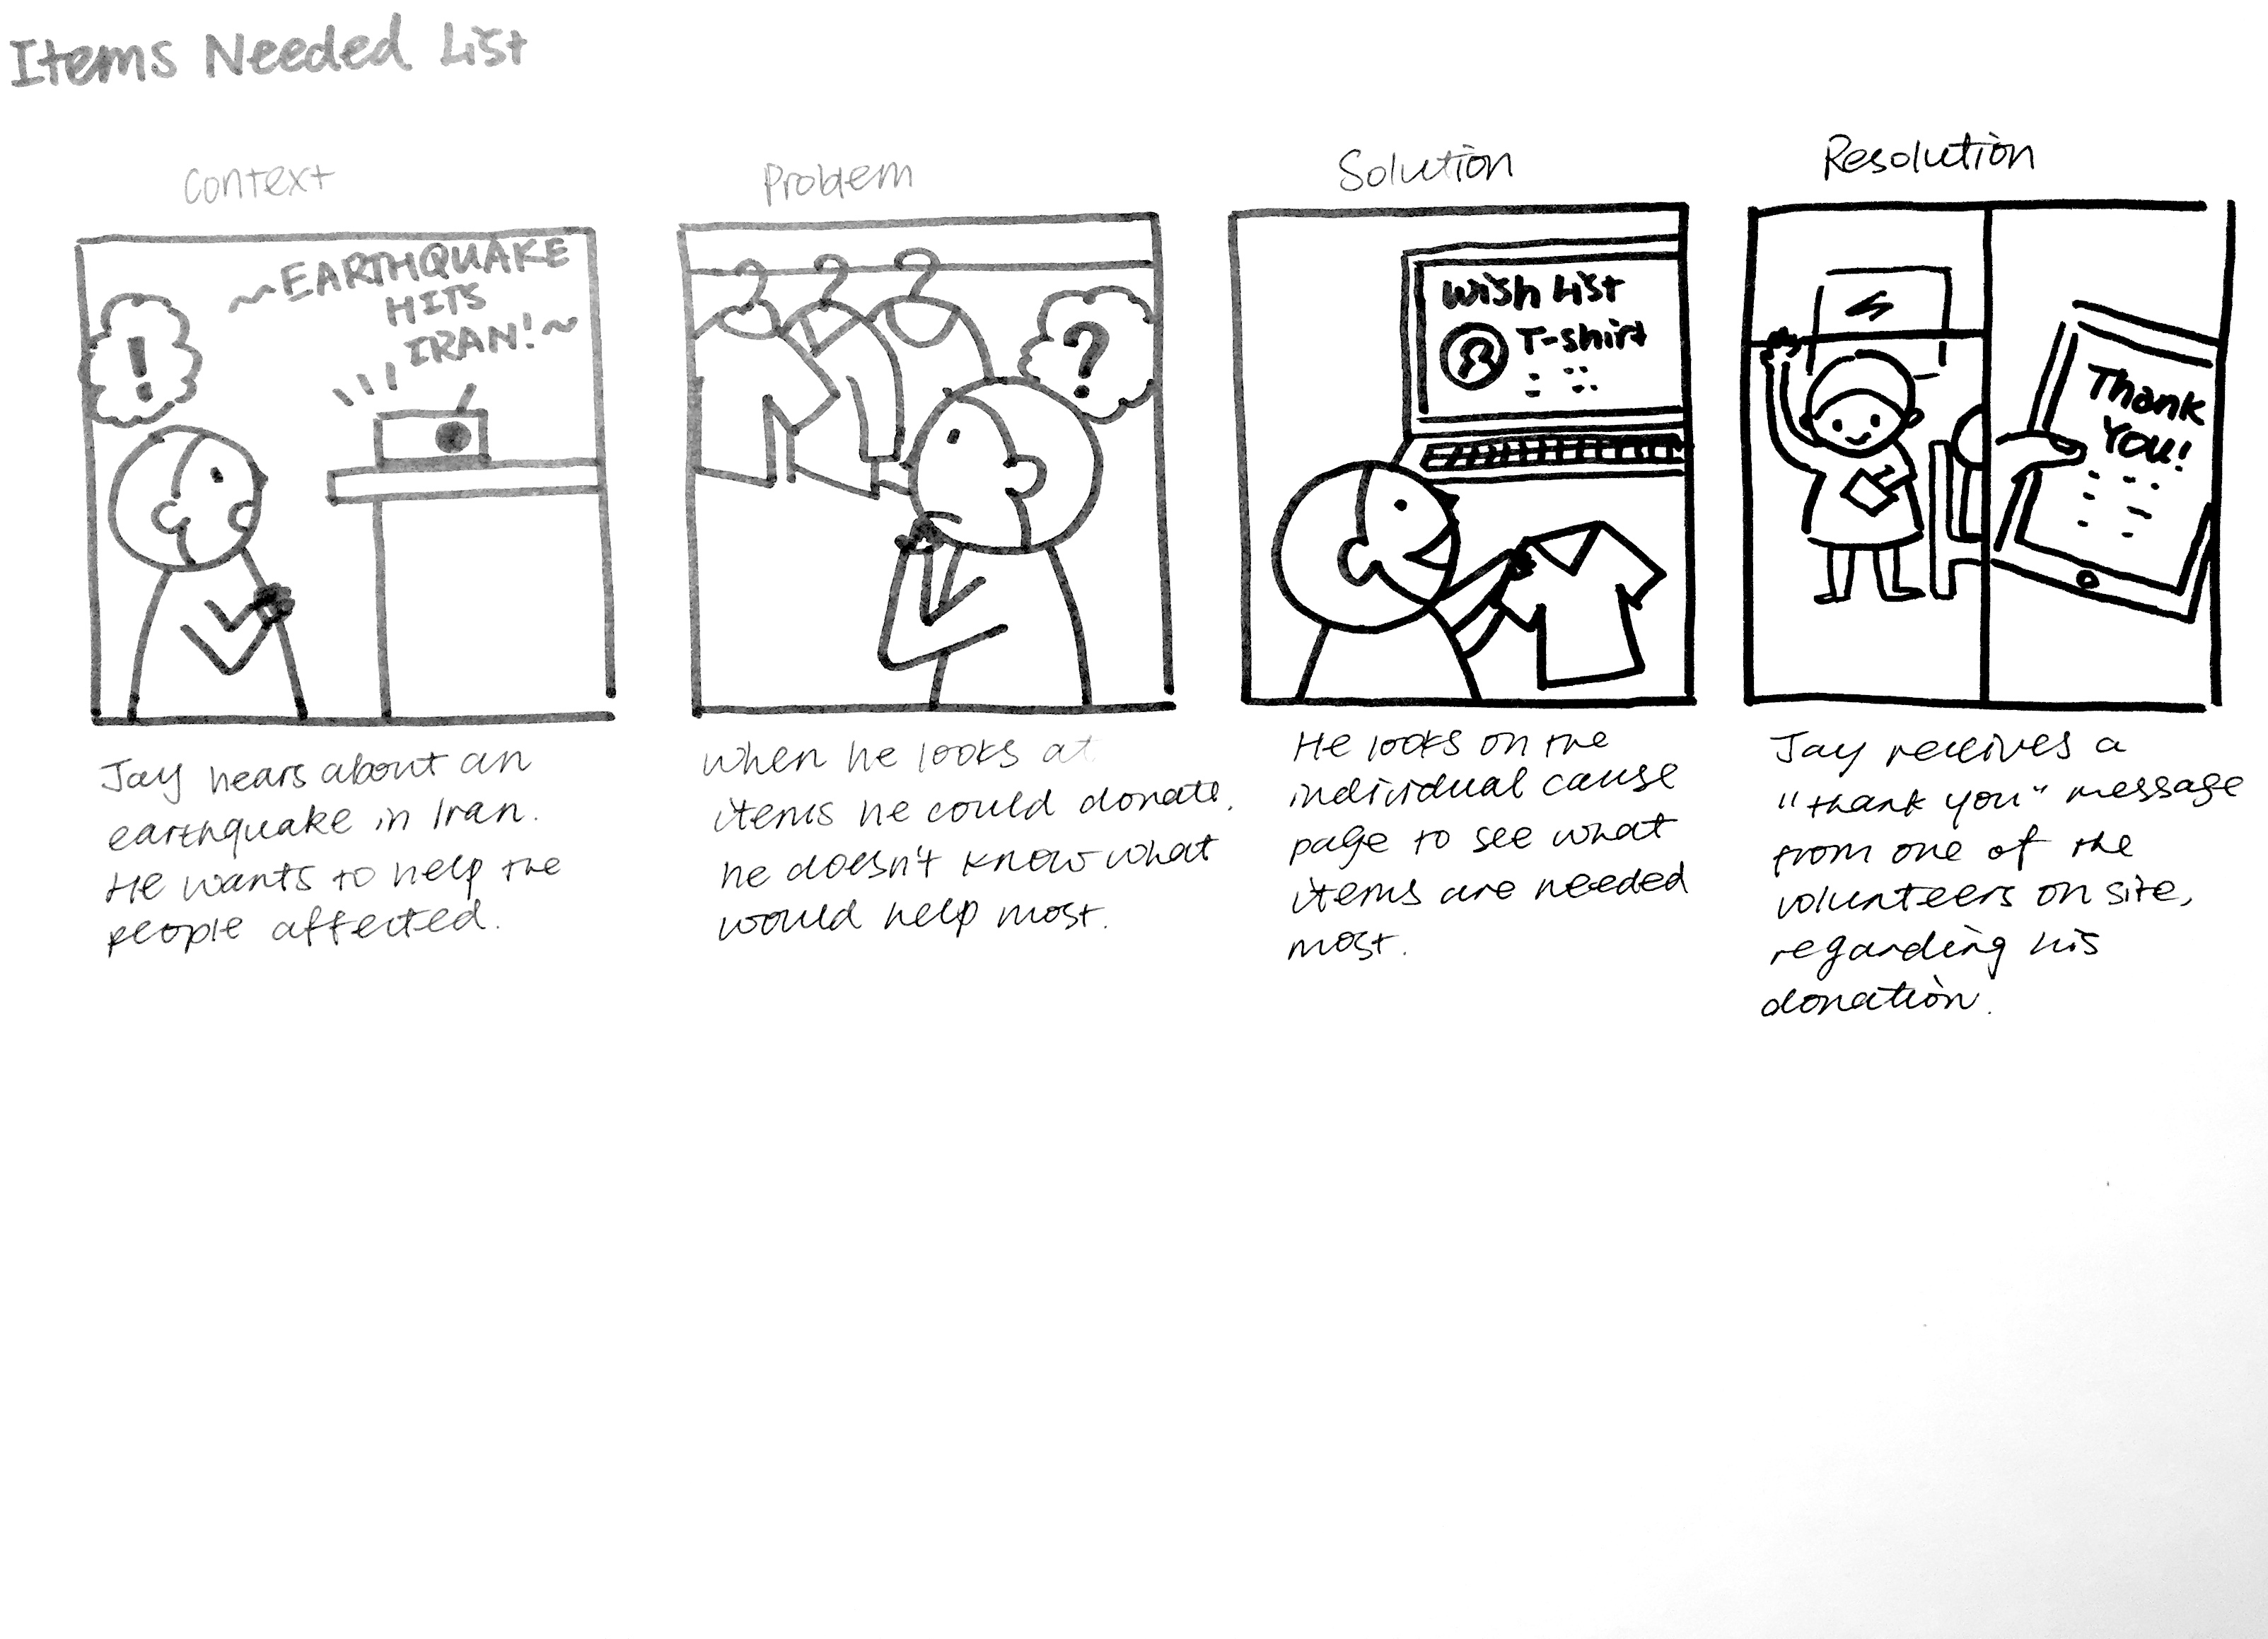 Items Needed List
Context
~EARTHQUAKE
HITS
IRAN!~
!
Jay hears about an
earthquake in Iran.
He wants to help the
people affected.
Problem
?
When he looks at
items he could donate,
he doesn't know what
would help most.
Solution
Wish List
T-shirt
He looks on the
individual cause
page to see what
items are needed
most.
Resolution
Thank
You!
Jay receives a
"thank you" message
from one of the
volunteers on site,
regarding his
donation.